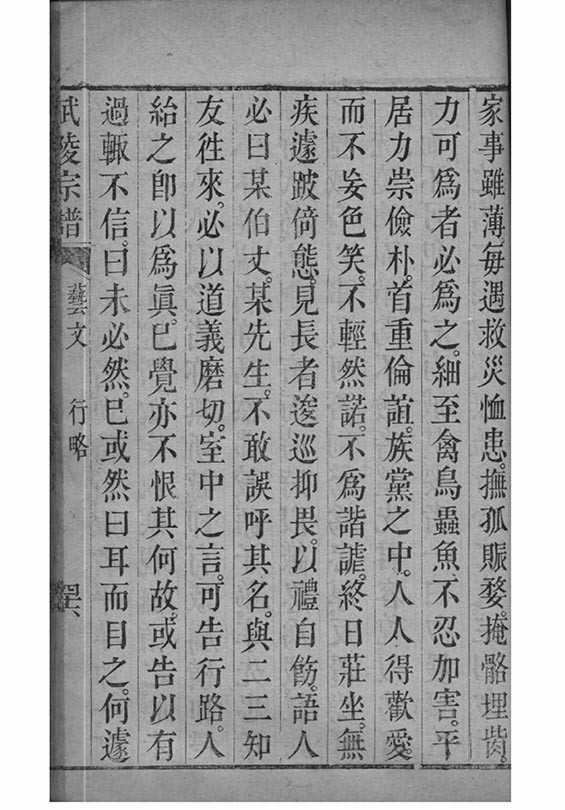 家事雖薄每遇救災恤患。撫孤賑婺。掩骼埋胔。
力可爲者必爲之。細至禽鳥蟲魚不忍加害。平
居力崇儉朴。首重倫誼。族黨之中。人人得歡愛
而不妄色笑。不輕然諾。不爲諧謔。終日莊坐。無
疾遽跛倚態。見長者逡巡抑畏。以禮自飭。語人
必曰某伯丈。某先生。不敢誤呼其名。與二三知
友徃來。必以道義磨切。室中之言。可告行路。人
紿之卽以爲眞。已覺亦不恨其何故。或告以有
過輙不信。曰未必然。已或然曰耳而目之。何遽
武陵宗譜 藝文 行略